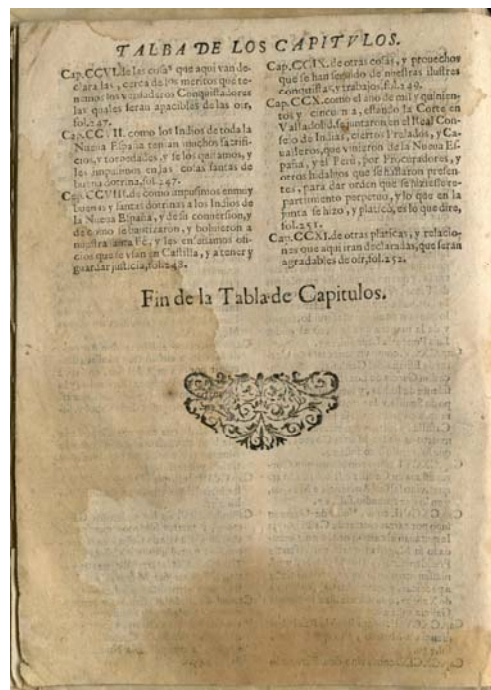 TALBA DE LOS CAPITVLOS.
Cap.CCVI.de las cosas que aqui van de-
claradas, cerca de los meritos que te-
nemos los verdaderos Conquistadores
las quales serán apacibles de las oir,
fol.247.
Cap.CC . II. como los Indios de toda la
Nueua España tenian muchos sacrifi-
cios, y torpedades, y se los quitamos, y
les impusimos en las cosas santas de
buena dotrina, fol.247.
Cap.CCVIII.de como impusimos en muy
buenas y santas dotrinas a los Indios de
la Nueua España, y de su conuersion, y
de como se bautizaron, y boluieron a
nuestra santa Fè, y les enseñamos ofi-
cios que se vsan en Castilla, y a tener y
guardar justicia, fol.248.
Cap.CCIX.de otras cosas, y prouechos
que se han seguido de nuestras ilustres
conquistas, y trabajos, fol.249.
Cap.CCX.como el año de mil y quinien-
tos y cincuenta, estando la Corte en
Valladolid, se juntaron en el Real Con-
sejo de Indias, ciertos Prelados, y Ca-
ualleros, que vinieron de la Nueua Es-
paña, y el Perù, por Procuradores, y
otros hidalgos que se hallaron presen-
tes, para dar orden que se hiziesse re-
partimiento perpetuo, y lo que en la
junta se hizo, y platicò, es lo que dire,
fol.251.
Cap.CCXI.de otras platicas, y relacio-
nes que aqui iran declaradas, que serán
agradables de oir, fol.252.
Fin de la Tabla de Capitulos.